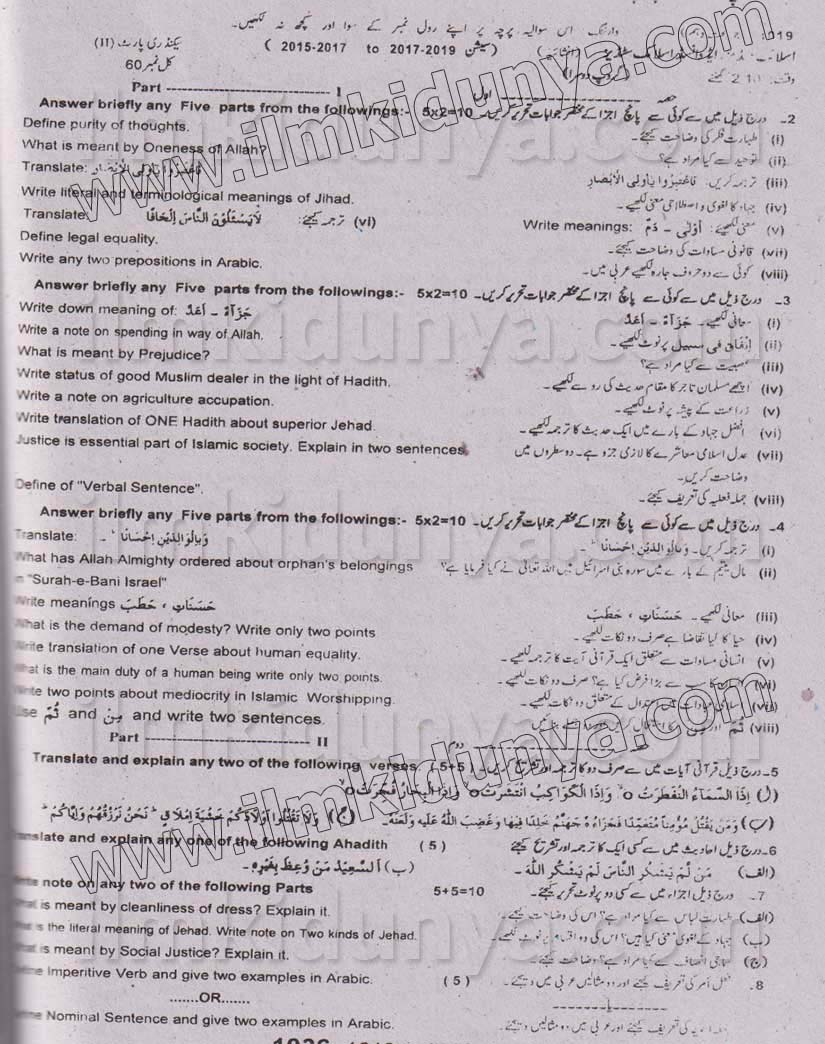 وارننگ اس سوالیہ پرچہ پر اپنے رول نمبر کے سوا اور کچھ نہ لکھیں۔
(سیشن 2015-2017 to 2017-2019)
سیکنڈری پارٹ (II)
کل نمبر 60
(گروپ دوسرا)
Part ------------------------------- I
حصہ اول
Answer briefly any Five parts from the followings:- 5x2=10 2- درج ذیل میں سے کوئی سے پانچ اجزا کے مختصر جوابات تحریر کریں۔
Define purity of thoughts. (i) طہارت فکر کی وضاحت کیجئے۔
What is meant by Oneness of Allah? (ii) توحید سے کیا مراد ہے؟
Translate: فَاعْتَبِرُوْا یٰۤاُولِی الْاَبْصَارِ (iii) ترجمہ کریں: فَاعْتَبِرُوْا یٰۤاُولِی الْاَبْصَارِ
Write literal and terminological meanings of Jihad. (iv) جہاد کا لغوی و اصطلاحی معنی لکھیے۔
Write meanings: (v) معنی لکھیے: اَوْلٰی - دَمٌ
Translate: (vi) ترجمہ کیجئے: لَا یَسْئَلُوْنَ النَّاسَ اِلْحَافًا
Define legal equality. (vii) قانونی مساوات کی وضاحت کیجئے۔
Write any two prepositions in Arabic. (viii) کوئی سے دو حروف جارہ لکھیے عربی میں۔
Answer briefly any Five parts from the followings:- 5x2=10 3- درج ذیل میں سے کوئی سے پانچ اجزا کے مختصر جوابات تحریر کریں۔
Write down meaning of: جَزَآءٌ - اَعَدَّ (i) معانی لکھیے۔ جَزَآءٌ - اَعَدَّ
Write a note on spending in way of Allah. (ii) انفاق فی سبیل پر نوٹ لکھیے۔
What is meant by Prejudice? (iii) عصبیت سے کیا مراد ہے؟
Write status of good Muslim dealer in the light of Hadith. (iv) اچھے مسلمان تاجر کا مقام حدیث کی رو سے لکھیے۔
Write a note on agriculture accupation. (v) زراعت کے پیشہ پر نوٹ لکھیے۔
Write translation of ONE Hadith about superior Jehad. (vi) افضل جہاد کے بارے میں ایک حدیث کا ترجمہ لکھیے۔
Justice is essential part of Islamic society. Explain in two sentences. (vii) عدل اسلامی معاشرے کا لازمی جزو ہے۔ دو سطروں میں
وضاحت کریں۔
Define of "Verbal Sentence". (viii) جملہ فعلیہ کی تعریف کیجئے۔
Answer briefly any Five parts from the followings:- 5x2=10 4- درج ذیل میں سے کوئی سے پانچ اجزا کے مختصر جوابات تحریر کریں۔
Translate: وَبِالْوَالِدَیْنِ اِحْسَانًا (i) ترجمہ کریں۔ وَبِالْوَالِدَیْنِ اِحْسَانًا
What has Allah Almighty ordered about orphan's belongings (ii) مال یتیم کے بارے میں سورہ بنی اسرائیل میں اللہ تعالی نے کیا فرمایا ہے؟
"Surah-e-Bani Israel"
Write meanings حَسَنَاتٍ ، حَطَبَ (iii) معانی لکھیے۔ حَسَنَاتٍ ، حَطَبَ
What is the demand of modesty? Write only two points (iv) حیا کا کیا تقاضا ہے صرف دو نکات لکھیے۔
Write translation of one Verse about human equality. (v) انسانی مساوات سے متعلق ایک قرآنی آیت کا ترجمہ لکھیے۔
What is the main duty of a human being write only two points. (vi) کا سب سے بڑا فرض کیا ہے؟ صرف دو نکات لکھیے۔
Write two points about mediocrity in Islamic Worshipping. (vii) عبادات میں اعتدال کے متعلق دو نکات لکھیے۔
Use ثُمَّ and مِنْ and write two sentences. (viii) ثُمَّ
Part ------------------------------- II
دوم
Translate and explain any two of the following verses (5+5) 5- درج ذیل قرآنی آیات میں سے صرف دو کا ترجمہ اور تشریح کریں۔
اِذَا السَّمَآءُ انْفَطَرَتْ ۝ وَاِذَا الْکَوَاکِبُ انْتَثَرَتْ ۝ وَاِذَا الْبِحَارُ فُجِّرَتْ ۝
(ب) وَمَنْ یَّقْتُلْ مُؤْمِنًا مُّتَعَمِّدًا فَجَزَآءُهٗ جَهَنَّمُ خٰلِدًا فِیْهَا وَغَضِبَ اللّٰهُ عَلَیْهِ وَلَعَنَهٗ۔ (ج) وَلَا تَقْتُلُوْۤا اَوْلَادَکُمْ خَشْیَةَ اِمْلَاقٍ نَحْنُ نَرْزُقُهُمْ وَاِیَّاکُمْ
Translate and explain any one of the following Ahadith (5) 6- درج ذیل احادیث میں سے کسی ایک کا ترجمہ اور تشریح کیجئے
(الف) مَنْ لَّمْ یَشْکُرِ النَّاسَ لَمْ یَشْکُرِ اللّٰهَ۔ (ب) اَلسَّعِیْدُ مَنْ وُّعِظَ بِغَیْرِهٖ۔
Write note on any two of the following Parts 5+5=10 7- درج ذیل اجزاء میں سے کسی دو پر نوٹ تحریر کیجئے۔
What is meant by cleanliness of dress? Explain it. (الف) طہارت لباس سے کیا مراد ہے؟ اس کی وضاحت کیجئے۔
What is the literal meaning of Jehad. Write note on Two kinds of Jehad. (ب) جہاد کے لغوی معنی کیا ہیں؟ اس کی دو اقسام پر نوٹ لکھیے۔
What is meant by Social Justice? Explain it. (ج) سماجی انصاف سے کیا مراد ہے؟ وضاحت کیجئے۔
Define Imperitive Verb and give two examples in Arabic. (5) 8- فعل امر کی تعریف کیجئے اور دو مثالیں عربی میں دیجئے۔
.......OR.......
Define Nominal Sentence and give two examples in Arabic. کی تعریف کیجئے اور عربی میں دو مثالیں دیجئے۔
www.ilmkidunya.com
ilmkidunya.com